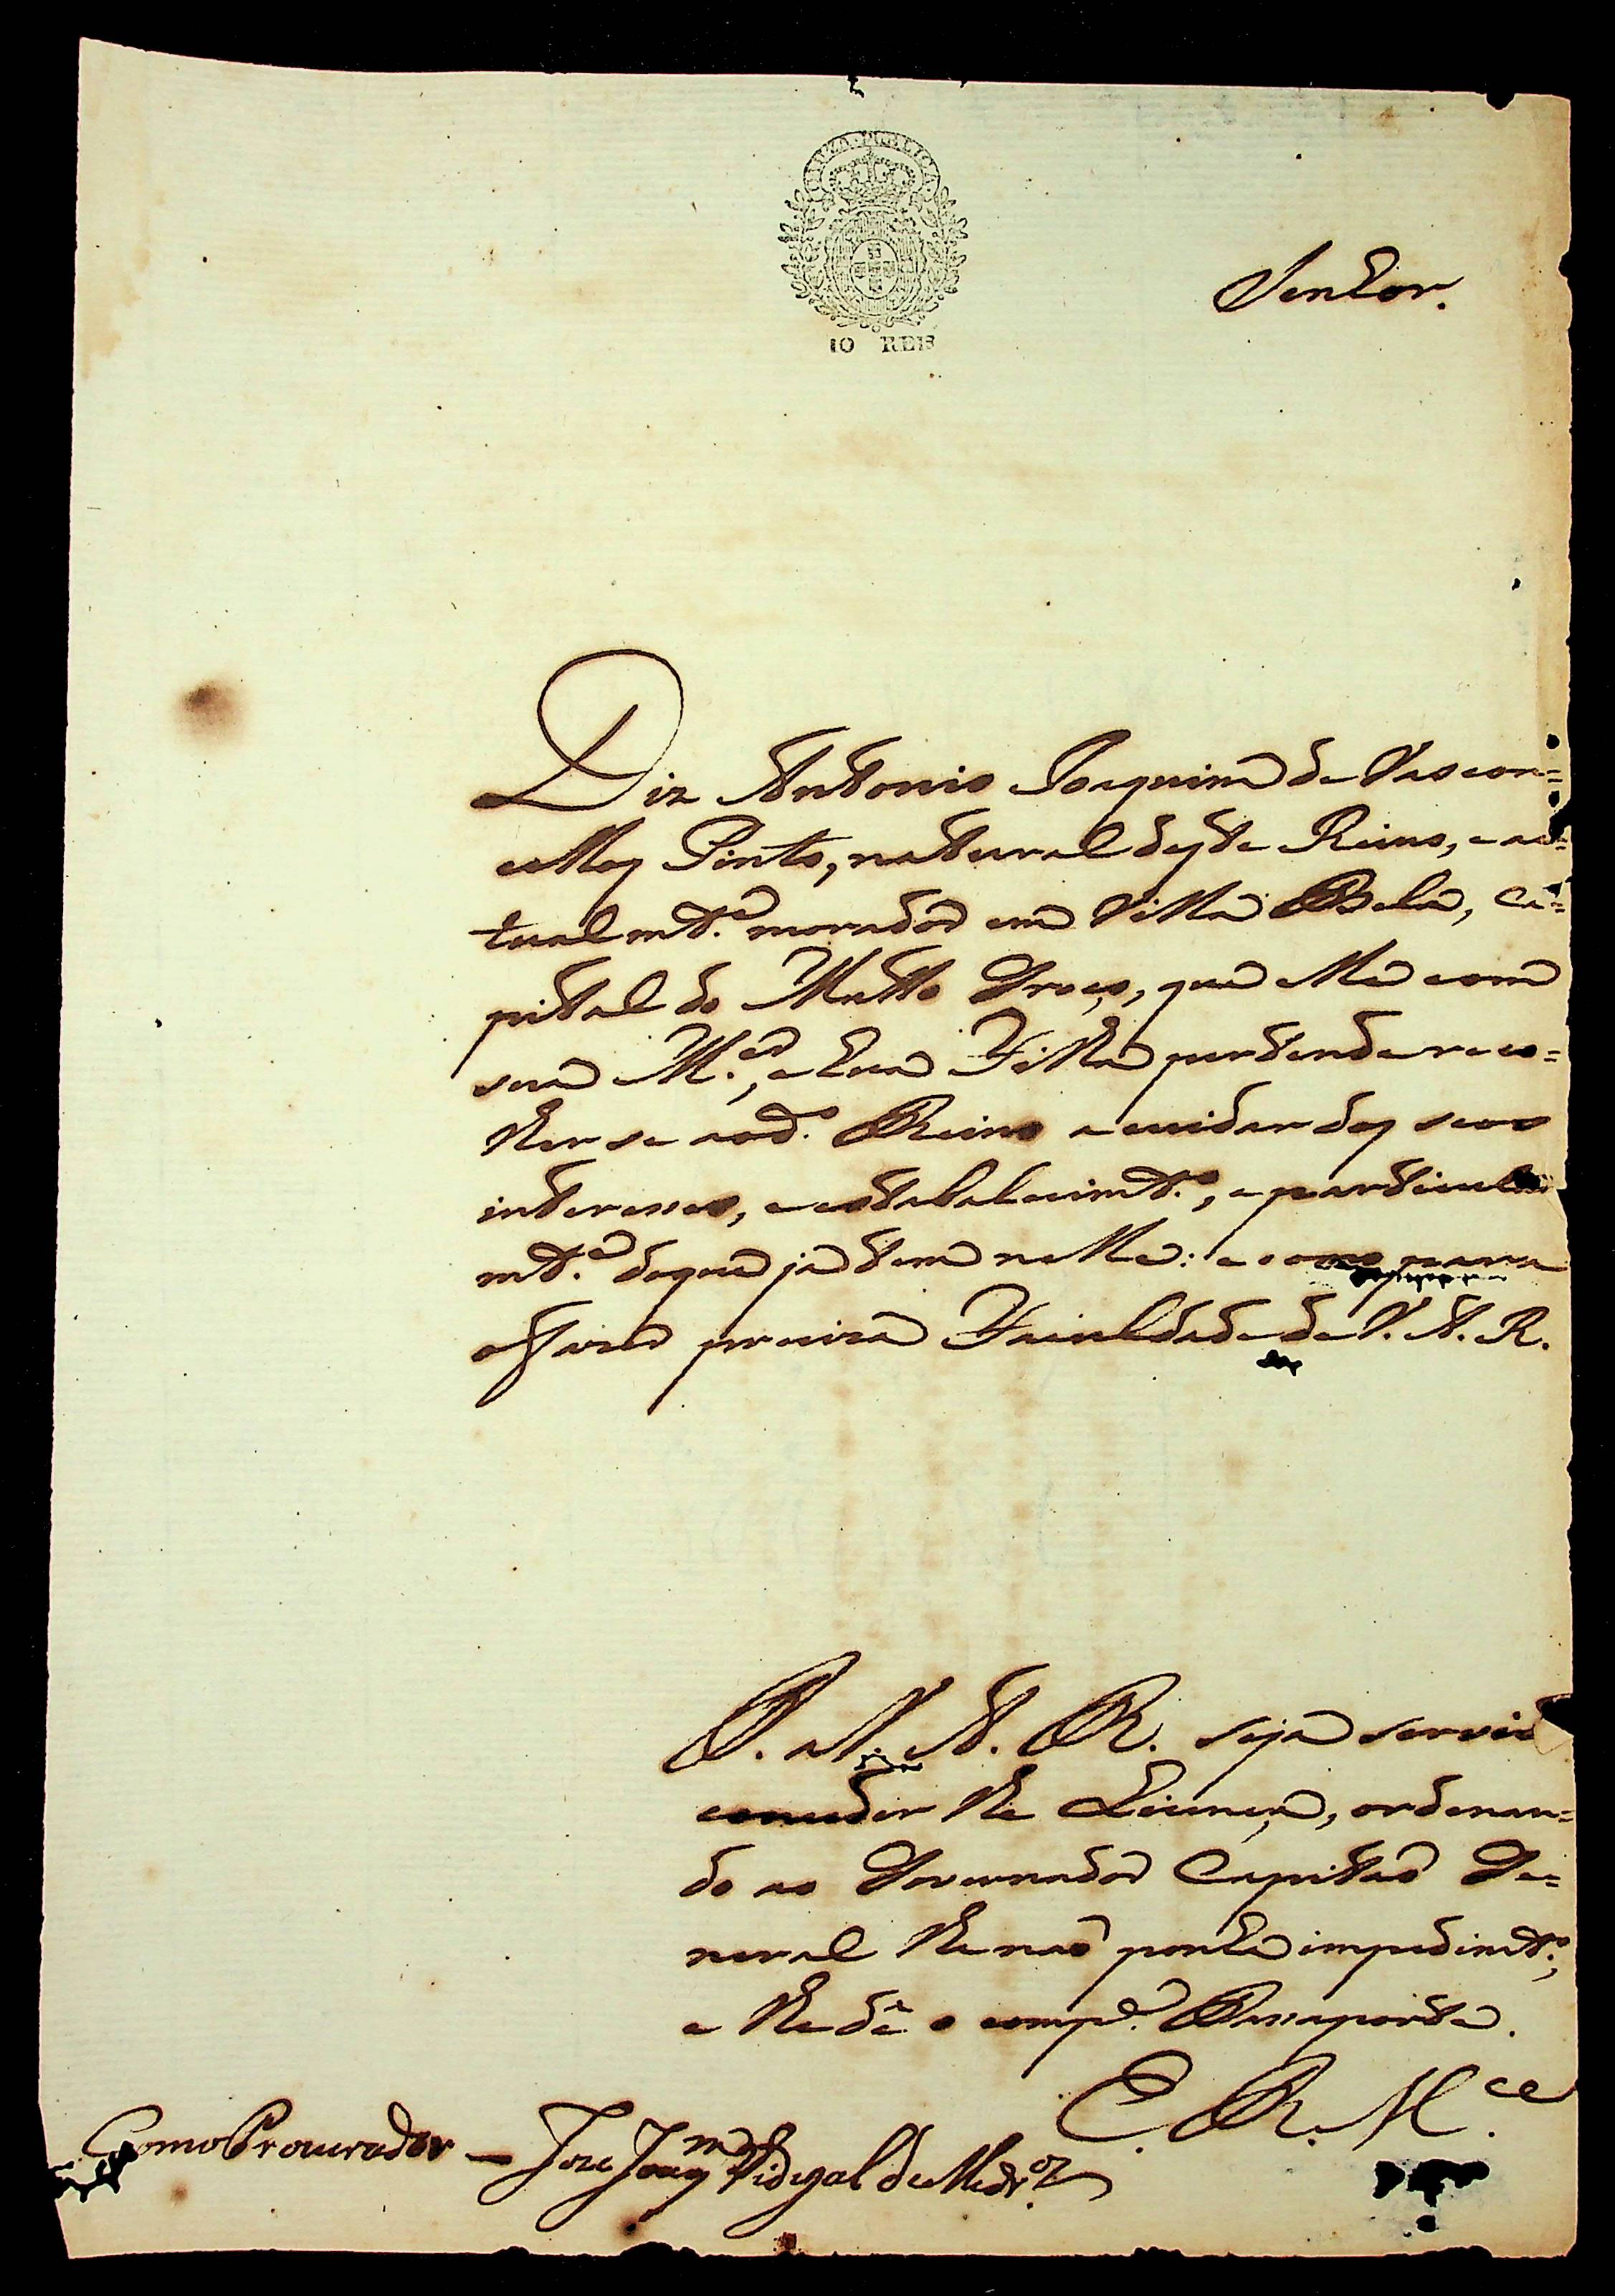 CAUZA PUBLICA
10 REIS
Senhor.
Diz Antonio Joaquim de Vascon=
cellos Pinto, natural deste Reino, e ac=
tualmte. morador em Villa Bela, Ca=
pital do Matto Groço, que elle com
sua Mer., e hua Filha pertende reco=
lherse aod.o Reino a cuidar dos seos
interesses, e estabalecimto., e particular
mte. do que ja tem nelle: e como para
o fazer preciza Faculdade de V. A. R.
P. a V. A. R. seja servido
conceder lhe Licença, ordenan=
do ao Governador Capitaõ Ge=
neral lhe naõ ponha impedimto.,
e lhe dê o compe. Passaporte.
E. R. M.ce
Como Procurador — Joze Joaqm. Vidigal de Medros.